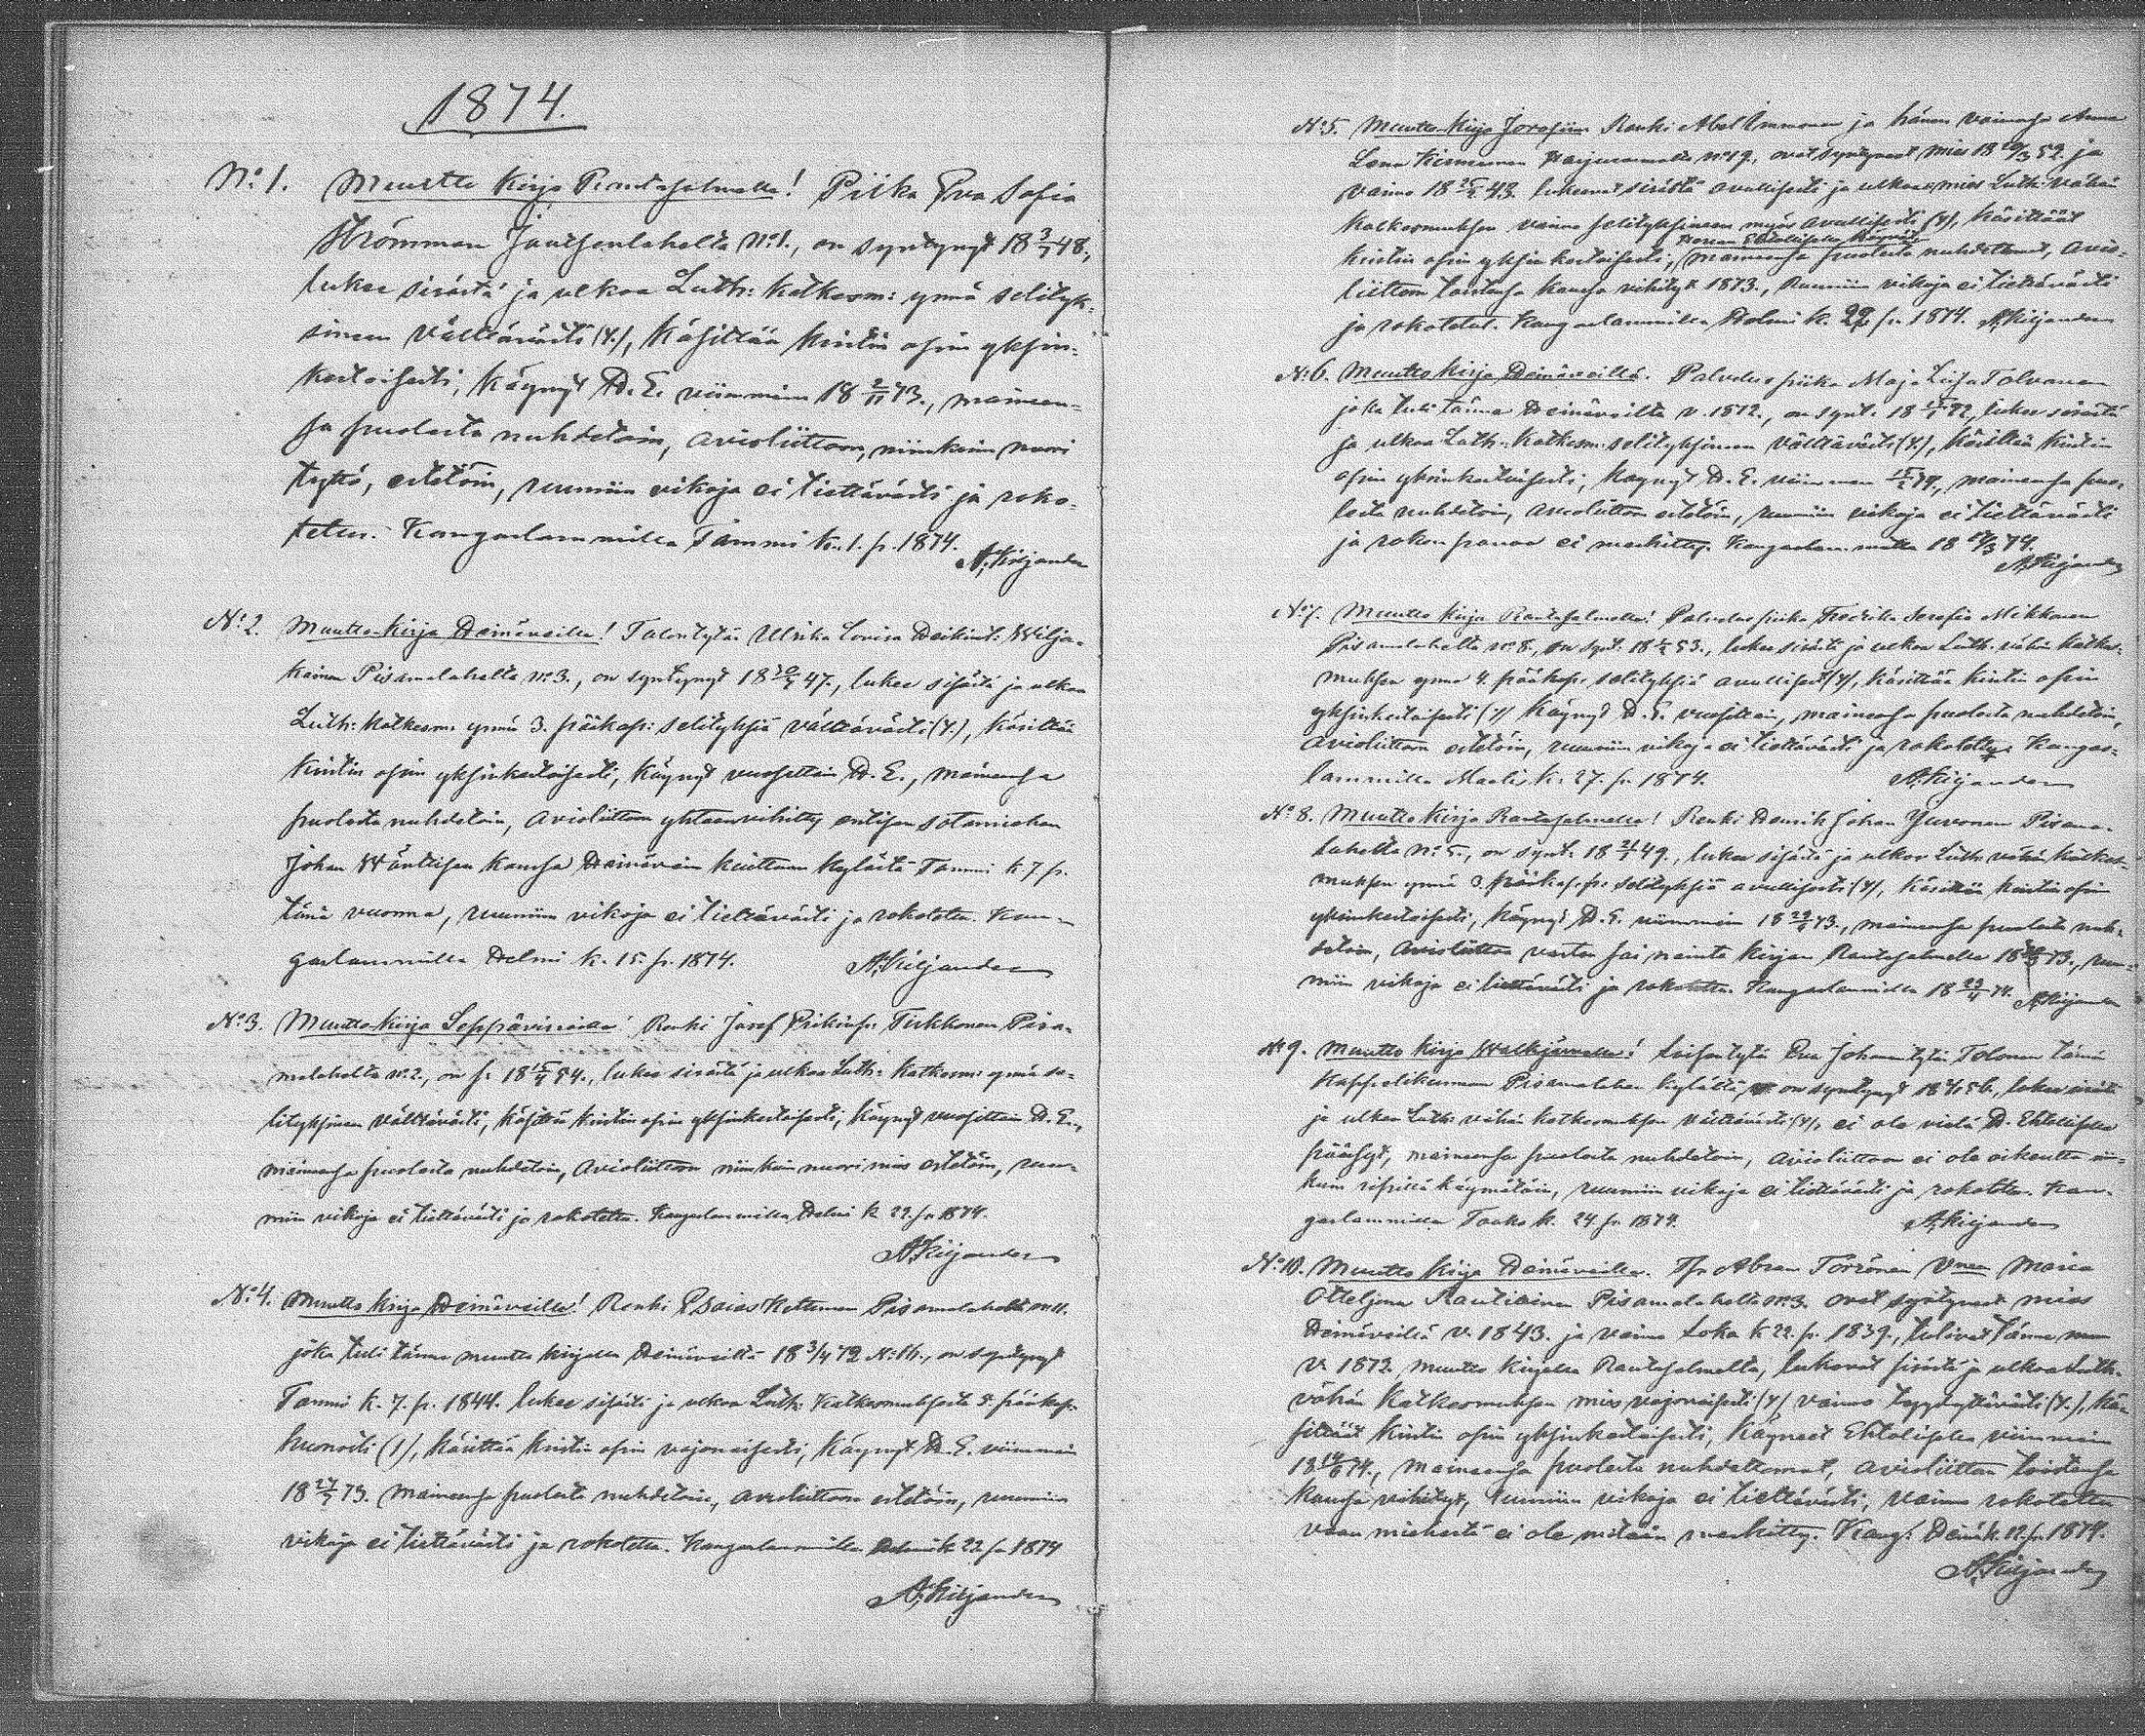 1874.
No 1. Muutto kirja Rantasalmelle! Piika Eva Sofia
Strömman Jautsenlahelta No 1., on syntynyt 18 3/7 48.,
lukee sisästä ja ulkoa Luth: Katkesm: ynnä selityk-
sineen välttävästi (x.), käsittää kristin opin yksin-
kertaisesti, käynyt H. E. viimmein 18 2/11 73., maineen-
sa puolesta nuhdetoin, avioliittoon, niinkuin nuori
tyttö, estetöin, ruumiin vikoja ei tiettävästi ja roko-
tettu. Kangaslammilla Tammi k. 1. p. 1874.
A. Kiljander
No 2. Muutto-kirja Heinäveille! Talontytär Ulrika Lovisa Heikint: Wilja-
kainen Pisamalahelta No 3., on syntynyt 18 30/7 47., lukee sisästä ja ulkoa
Luth: Katkesm: ynnä 3. pääkap: selityksiä välttävästi (x.), käsittää
kristin opin yksinkertaisesti, käynyt vuosittain H. E., maineensa
puolesta nuhdetoin, avioliittoon yhteenvihitty entisen sotamiehen
Johan Wänttisen kanssa Heinävein kylästä Tammi k 7 p.
tänä vuonna, ruumiin vikoja ei tiettävästi ja rokotettu. Kan-
gaslammilla Helmi k. 15. p. 1874.
A. Kiljander
No 3. Muutto-kirja Leppävirroille! Renki Josef Erikinp. Tirkkonen Pisa-
malahelta No 2., on s. 18 54., lukee sisästä ja ulkoa Luth: Katkesm: ynnä se-
lityksineen välttävästi, käsittää kristin opin yksinkertaisesti, käynyt vuosittain H. E.,
maineensa puolesta nuhdetoin, avioliittoon niinkuin nuori mies estetöin, ruu-
miin vikoja ei tiettävästi ja rokotettu. Kangaslammilla Helmi k 22. p. 1874.
A. Kiljander
No 4. Muutto kirja Heinäveille! Renki Esaias Kettunen Pisamalahelta No 11.
joka tuli tänne muutto kirjalla Heinäveiltä 18 3/4 72 No 16., on syntynyt
Tammi k. 7. p. 1844. lukee sisästä ja ulkoa Luth: Katkesmuksesta 5. pääkap.
huonosti (1), käsittää kristin opin vajonaisesti, käynyt H. E. viimmein
18 27/7 73. maineensa puolesta nuhdetoin, avioliittoon estetöin, ruumiin
vikoja ei tiettävästi ja rokotettu. Kangaslammilla Helmi k 22. p. 1874
A. Kiljander
No 5. Muutto-Kirja Joroisiin Renki Abel Immonen ja hänen vaimonsa Anna
Lena Kinnunen Harjurannalta No 19, ovat syntyneet mies 18 52. ja
vaimo 18 43. lukevat sisästä avullisesti ja ulkoa mies Luth: vähän
Katkesmuksen vaimo selityksineen myös avullisesti (x), käsittävät
Herran Ehtoollisella käyneet
kristin opin yksinkertaisesti, maineensa puolesta nuhdettomat, avio-
liittoon toistensa kanssa vihityt 1873., Ruumiin vikoja ei tiettävästi
ja rokotetut. Kangaslammilla Helmi k. 22 p. 1874. A. Kiljander
No 6. Muutto kirja Heinäveille. Palvelus piika Maja Liisa Tolvanen
joka tuli tänne Heinäveiltä v. 1872., on synt. 18 , lukee sisästä
ja ulkoa Luth: Katkesm: selityksineen välttävästi (x.), käsittää kristin
opin yksinkertaisesti, käynyt H. E. viimmein 74., maineensa puo-
lesta nuhdetoin, avioliittoon estetöin, ruumiin vikoja ei tiettävästi
ja rokon panoa ei merkitty. Kangaslammilla 18 74.
A. Kiljander
No 7. Muutto kirja Rantasalmelle! Palvelus piika Fredrika Serafia Mikkonen
Pisamalahelta No 8., on synt. 18 53., lukee sisästä ja ulkoa Luth: vähän katkes-
muksen ynnä 4. pääkap: selityksiä avullisesti (x), käsittää kristin opin
yksinkertaisesti (x) käynyt H. E. vuosittain, maineensa puolesta nuhdetoin,
avioliittoon estetöin, ruumiin vikoja ei tiettävästi ja rokotettu. Kangas-
lammilla Maalis k. 27. p. 1874. A. Kiljander
No 8. Muutto Kirja Rantasalmelle! Renki Henrik Johan Juvonen Pisama-
lahelta No 5., on synt. 18 49., lukee sisästä ja ulkoa Luth: vähän Katkes-
muksen ynnä 3. pääkap. selityksiä avullisesti (x), käsittää kristin opin
yksinkertaisesti, käynyt H. E. viimmein 18 73., maineensa puolesta nuh-
detoin, avioliittoa varten sai nainta kirjan Rantasalmelle 18 73., ruu-
miin vikoja ei tiettävästi ja rokotettu. Kangaslammilla 18 23/4 74. A. Kiljander
No 9. Muutto kirja Walkjärvelle! Loisentytär Eva Johanintytär Tolonen tämän
Kappelikunnan Pisamalahen kylästä, on syntynyt 18 56., lukee sisästä
ja ulkoa Luth: vähän katkesmuksen välttävästi (x), ei ole vielä H. Ehtolliselle
päässyt, maineensa puolesta nuhdetoin, avioliittoon ei ole oikeutta nii-
kuin ripillä käymätöin, ruumiin vikoja ei tiettävästi ja rokotettu. Kan-
gaslammilla Touko k. 24. p. 1874. A. Kiljander
No 10. Muutto Kirja Heinäveille. Abram Torrönen Vmo Maria
Ottiljana Rautiainen Pisamalahelta No 3. ovat syntyneet mies
Heinäveillä v. 1843. ja vaimo Loka k 22. p. 1839., tulivat tänne
v. 1872, muutto kirjalla Rantasalmelta, lukevat sisästä ja ulkoa Luth:
vähän Katkesmuksen mies vajonaisesti (x) vaimo tyydyttävästi (x.), kä-
sittävät kristin opin yksinkertaisesti, käyneet Ehtolisella viimmein
18 74., maineensa puolesta nuhdettomat, avioliittoon toistensa
kanssa vihityt, ruumiin vikoja ei tiettävästi, vaimo rokotettu
vaan miehestä ei ole mitään merkitty. Kang: Heinä k. 12 p. 1874.
A. Kiljander